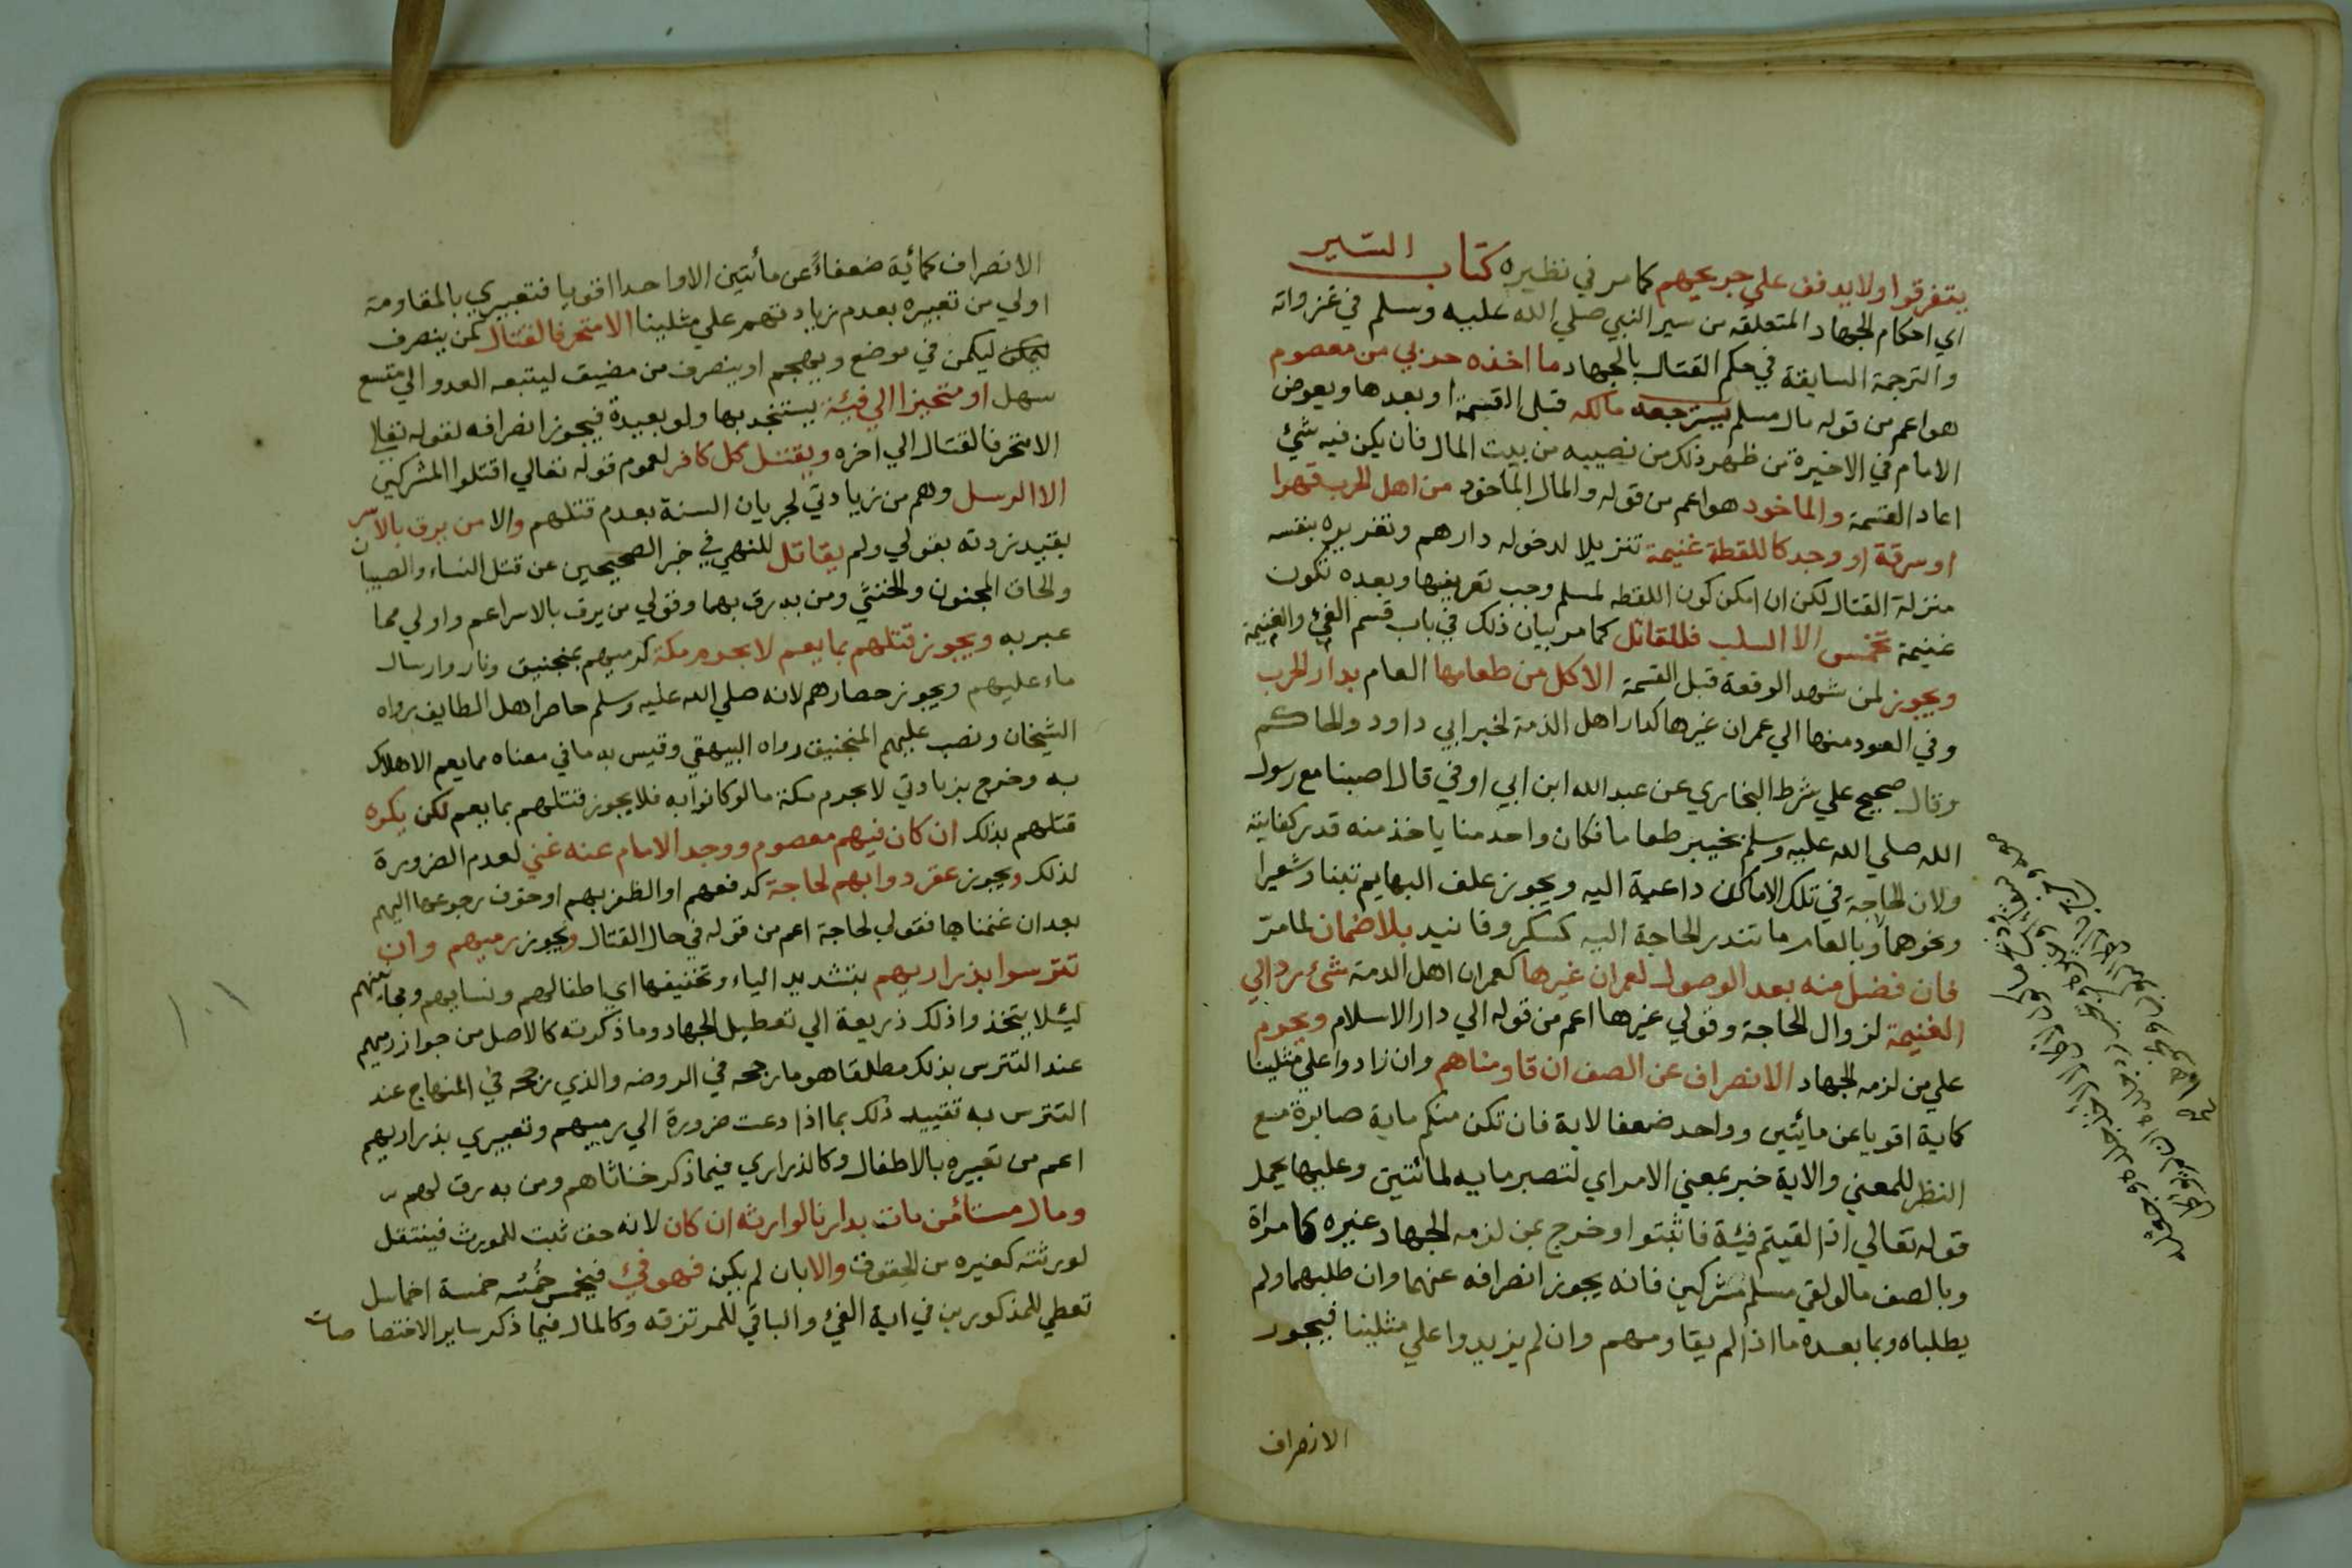 يتفرقوا ولا يدفف علي جريحهم كما مر في نظيره كتاب السير
اي احكام الجهاد المتعلقه من سير النبي صلي الله عليه وسلم في غزواته
والترجمة السابقة في حكم القتال بالجهاد ما اخذه حربي من معصوم
هو اعم من قوله مال مسلم يسترجعه مالكه قبل القسمة او بعدها ويعوض
الامام في الاخيرة من ظهر ذلك من نصيبه من بيت المال فان يكن فيه شئ
اعاد القسمة والماخوذ هو اعم من قوله والمال الماخوذ من اهل الحرب قهرا
او سرقة او وجد كاللقطة غنيمة تنزيلا لدخوله دارهم وتغريره بنفسه
منزلة القتال لكن ان امكن كون اللقطه لمسلم وجب تعريفها وبعده تكون
غنيمة تخمس الا السلب فللقاتل كما مر بيان ذلك في باب قسم الفئ والغنيمة
ويجوز لمن شهد الوقعة قبل القسمة الاكل من طعامها العام بدار الحرب
وفي العود منها الي عمران غيرها كدار اهل الذمة لخبر ابي داود والحاكم
وقال صحيح علي شرط البخاري عن عبد الله ابن ابي اوفي قال اصبنا مع رسول
الله صلي الله عليه وسلم بخيبر طعاما فكان واحد منا ياخذ منه قدر كفايته
ولان الحاجة في تلك الاماكن داعية اليه ويجوز علف البهايم تبنا وشعيرا
ونحوهما وبالعام ما تندر الحاجة اليه كسكر وفانيد بلا ضمان لما مر
فان فضل منه بعد الوصول لعمران غيرها كعمران اهل الذمة شئ رد الي
الغنيمة لزوال الحاجة وقولي غيرها اعم من قوله الي دار الاسلام ويحرم
علي من لزمه الجهاد الانصراف عن الصف ان قاومناهم وان زادوا علي مثلينا
كماية اقويا عن مايتين وواحد ضعفا لاية فان تكن منكم ماية صابرة مع
النظر للمعني والاية خبر بمعني الامر اي لتصبر مايه لمائتين وعليها يحمل
قوله تعالي اذا لقيتم فيئة فاثبتوا وخرج بمن لزمه الجهاد غيره كامراة
وبالصف ما لو لقي مسلم مشركين فانه يجوز انصرافه عنهما وان طلبهما ولم
يطلباه وبما بعده ما اذا لم يقاومهم وان لم يزيدوا علي مثلينا فيجوز
الانصراف
الانصراف كمائة ضعفاء عن مأئتين الا واحدا اقويا فتعبيري بالمقاومة
اولي من تعبيره بعدم زيادتهم علي مثلينا الا متحرفا لقتال كمن ينصرف
ليكمن في موضع ويهجم او ينصرف من مضيق ليتبعه العدو الي متسع
سهل او متحيزا الي فيئة يستنجد بها ولو بعيدة فيجوز انصرافه لقوله تعالي
الا متحرفا لقتال الي اخره ويقتل كل كافر لعموم قوله تعالي اقتلوا المشركين
الا الرسل وهم من زيادتي لجريان السنة بعدم قتلهم والا من يرق بالاسر
بقيد زدته بقولي ولم يقاتل للنهي في خبر الصحيحين عن قتل النساء والصبيان
والحاق المجنون والخنثي ومن به رق بهما وقولي من يرق بالاسر اعم واولي مما
عبر به ويجوز قتلهم بما يعم لا بحرم مكة كرميهم بمنجنيق ونار وارسال
ماء عليهم ويجوز حصارهم لانه صلي الله عليه وسلم حاصر اهل الطايف رواه
الشيخان ونصب عليهم المنجنيق رواه البيهقي وقيس به ما في معناه مما يعم الاهلاك
به وخرج بزيادتي لا بحرم مكة ما لو كانوا به فلا يجوز قتلهم بما يعم لكن يكره
قتلهم بذلك ان كان فيهم معصوم ووجد الامام عنه غني لعدم الضرورة
لذلك ويجوز عقر دوابهم لحاجة كدفعهم او الظفر بهم او خوف رجوعها اليهم
بعد ان غنمناها فقولي لحاجة اعم من قوله في حال القتال ويجوز رميهم وان
تترسوا بذراريهم بتشديد الياء وتخفيفها اي اطفالهم ونسايهم ومجانينهم
ليئلا يتخذوا ذلك ذريعة الي تعطيل الجهاد وما ذكرته كالاصل من جواز رميهم
عند التترس بذلك مطلقا هو ما رجحه في الروضه والذي رجحه في المنهاج عند
التترس به تقييد ذلك بما اذا دعت ضرورة الي رميهم وتعبيري بذراريهم
اعم من تعبيره بالاطفال وكالذراري فيما ذكر خناثاهم ومن به رق لهم
ومال مستأمن مات بدارنا لوارثه ان كان لانه حق ثبت للمورث فينتقل
لورثته كغيره من الحقوق والا بان لم يكن فهو فئ فيخمس خمسه خمسة اخماس
تعطي للمذكورين في اية الفئ والباقي للمرتزقه وكالمال فيما ذكر ساير الاختصاصات